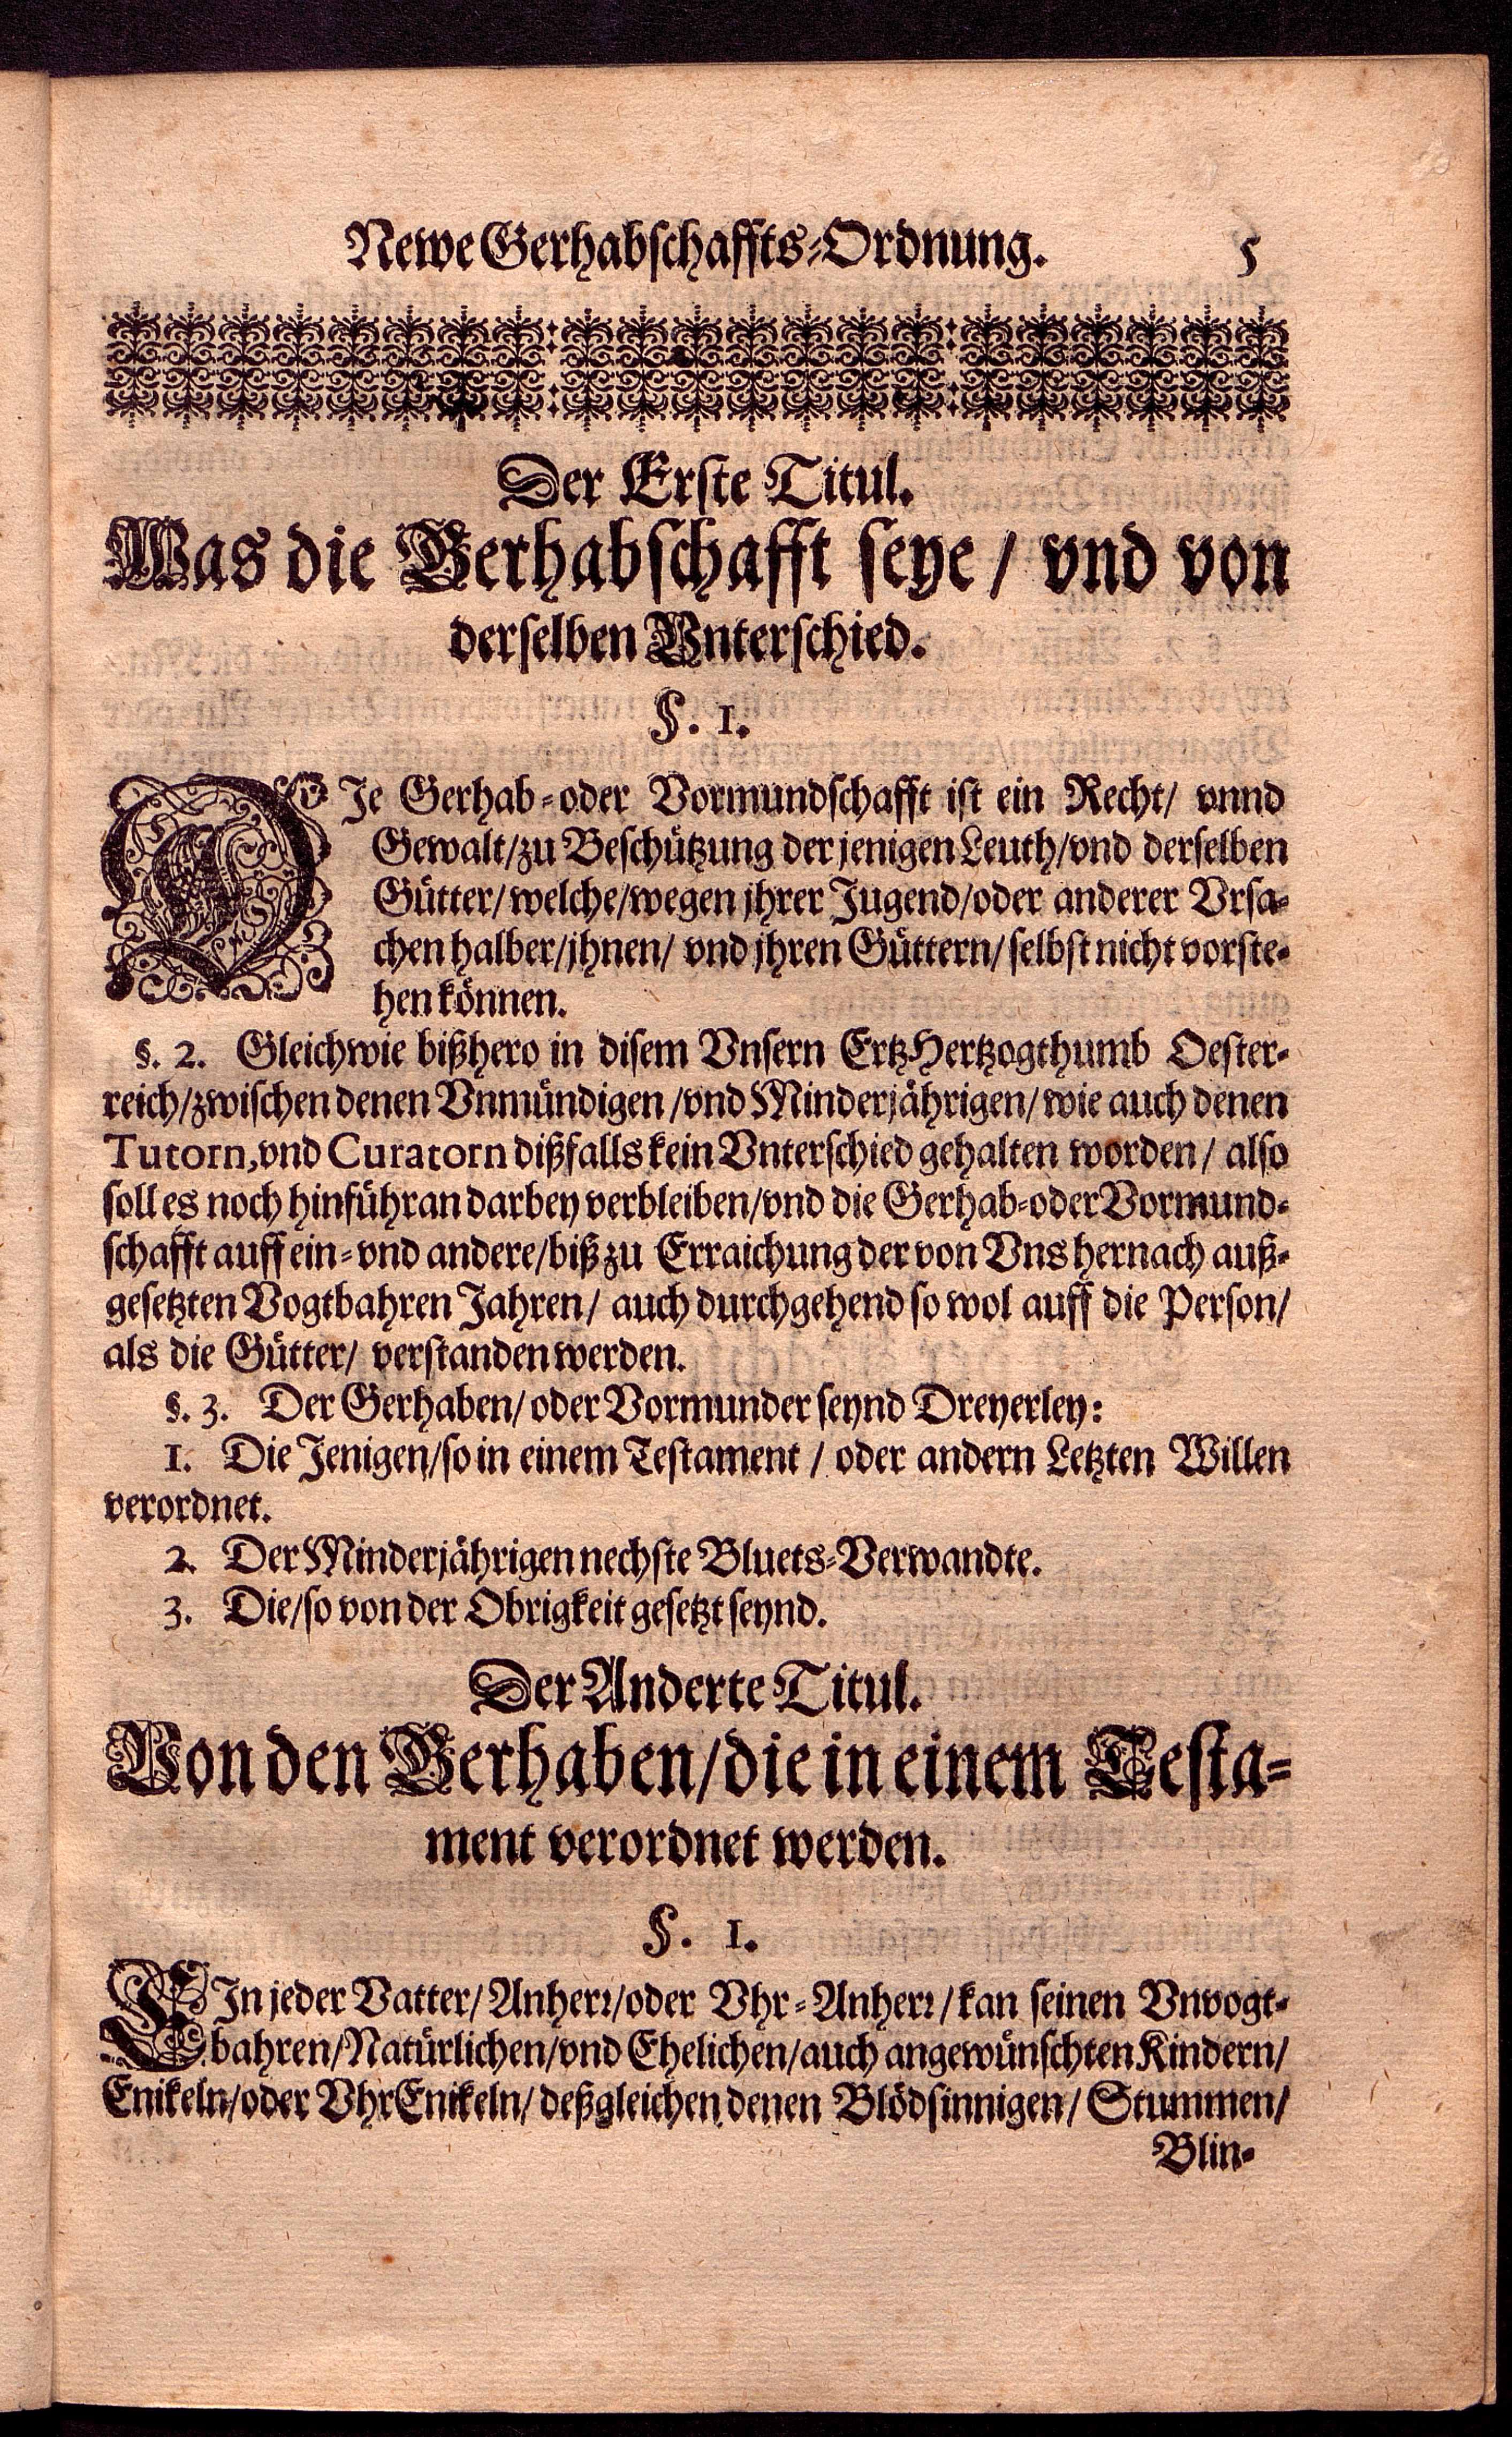 Newe Gerhabschaffts-Ordnung. 5
Der Erste Titul.
Was die Gerhabschafft seye / vnd von
derselben Vnterschied.
§. 1.
DIe Gerhab-oder Vormundschafft ist ein Recht/ vnnd
Gewalt/zu Beschützung der jenigen Leuth/vnd derselben
Gütter/welche/wegen jhrer Jugend/oder anderer Vrsa-
chen halber/jhnen/ vnd jhren Güttern/selbst nicht vorste-
hen können.
§. 2. Gleichwie bißhero in disem Vnsern ErtzHertzogthumb Oester-
reich/zwischen denen Vnmündigen/vnd Minderjährigen/wie auch denen
Tutorn,vnd Curatorn dißfalls kein Vnterschied gehalten worden/ also
soll es noch hinführan darbey verbleiben/vnd die Gerhab-oder Vormund-
schafft auff ein-vnd andere/biß zu Erraichung der von Vns hernach auß-
gesetzten Vogtbahren Jahren/ auch durchgehend so wol auff die Person/
als die Gütter/ verstanden werden.
§. 3. Der Gerhaben/oder Vormunder seynd Dreyerley:
1. Die Jenigen/so in einem Testament / oder andern Letzten Willen
verordnet.
2. Der Minderjährigen nechste Bluets-Verwandte.
3. Die/so von der Obrigkeit gesetzt seynd.
Der Anderte Titul.
Von den Gerhaben/die in einem Testa-
ment verordnet werden.
§. 1.
EIn jeder Vatter/Anherr/oder Vhr-Anherr/kan seinen Vnvogt-
bahren/Natürlichen/vnd Ehelichen/auch angewünschten Kindern/
Enikeln/oder VhrEnikeln/ deßgleichen denen Blödsinnigen/ Stummen/
Blin-